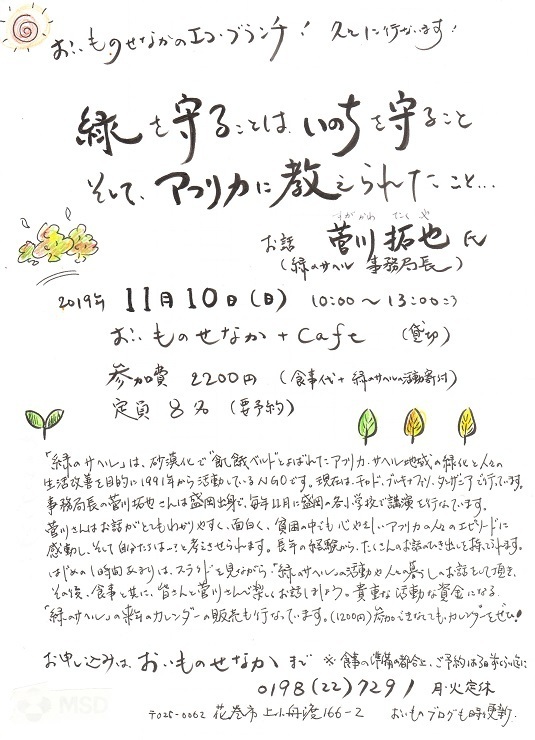 おいものせなかのエコ・ブランチ! 久々に行ないます!
緑を守ることは、いのちを守ること
そして、アフリカに教えられたこと...
すがかわ たくや
お話 菅川拓也氏
(緑のサヘル 事務局長)
2019年 11月10日(日) 10:00〜13:00ころ
おいものせなか+Cafe (貸切)
参加費 2200円 (食事代+緑のサヘルの活動寄付)
定員 8名 (要予約)
「緑のサヘル」は、砂漠化で"飢餓ベルト"とよばれたアフリカ・サヘル地域の緑化と人々の
生活改善を目的に1991年から活動しているNGOです。現在は、チャド、ブルキナファソ、タンザニアで行ています。
事務局長の菅川拓也さんは盛岡出身で、毎年11月に盛岡の各小学校で講演を行なています。
菅川さんはお話がとてもわかりやすく、面白く、貧困の中でも心やさしいアフリカの人々のエピソードに
感動し、そして自分たちはへと考えさせられます。長年の経験から、たくさんのお話のひき出しを持てれます。
はじめの1時間あまりは、スライドを見ながら「緑のサヘル」の活動や人々の暮しのお話をして頂き、
その後、食事と共に、皆さんと菅川さんで楽しくお話しましょう。貴重な活動な資金になる
「緑のサヘル」の来年のカレンダーの販売も行なっています。(1200円)参加できなくても、カレンダーもぜひ!
お申し込みは、おいものせなか まで ※食事の準備の都合上、ご予約は3日前くらいに
0198(22)7291 月・火定休
〒025-0062 花巻市上小舟渡166-2 おいものブログも時々更新
MSD